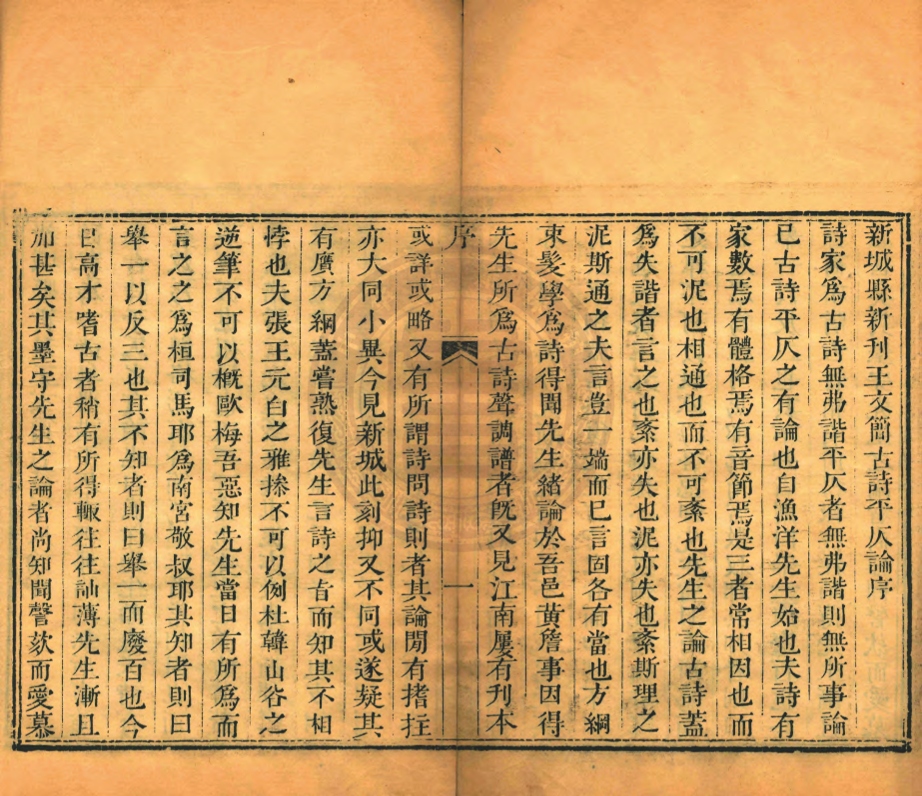 新城縣新刊王文簡古詩平仄論序
詩家爲古詩無弗諧平仄者無弗諧則無所事論
已古詩平仄之有論也自漁洋先生始也夫詩有
家數焉有體格焉有音節焉是三者常相因也而
不可泥也相通也而不可紊也先生之論古詩蓋
爲失諧者言之也紊亦失也泥亦失也紊斯理之
泥斯通之夫言豈一端而已言固各有當也方綱
束髮學爲詩得聞先生緒論於吾邑黄詹事因得
先生所爲古詩聲調譜者旣又見江南屢有刊本
序
一
或詳或略又有所謂詩問詩則者其論閒有撦拄
亦大同小異今見新城此刻抑又不同或遂疑其
有贗方綱蓋嘗熟復先生言詩之旨而知其不相
悖也夫張王元白之雅操不可以例杜韓山谷之
逆筆不可以槪歐梅吾惡知先生當日有所爲而
言之之爲桓司馬耶爲南宮敬叔耶其知者則曰
舉一以反三也其不知者則曰舉一而廢百也今
日高才嗜古者稍有所得輙往往訕薄先生漸且
加甚矣其墨守先生之論者尚知聞謦欬而愛慕